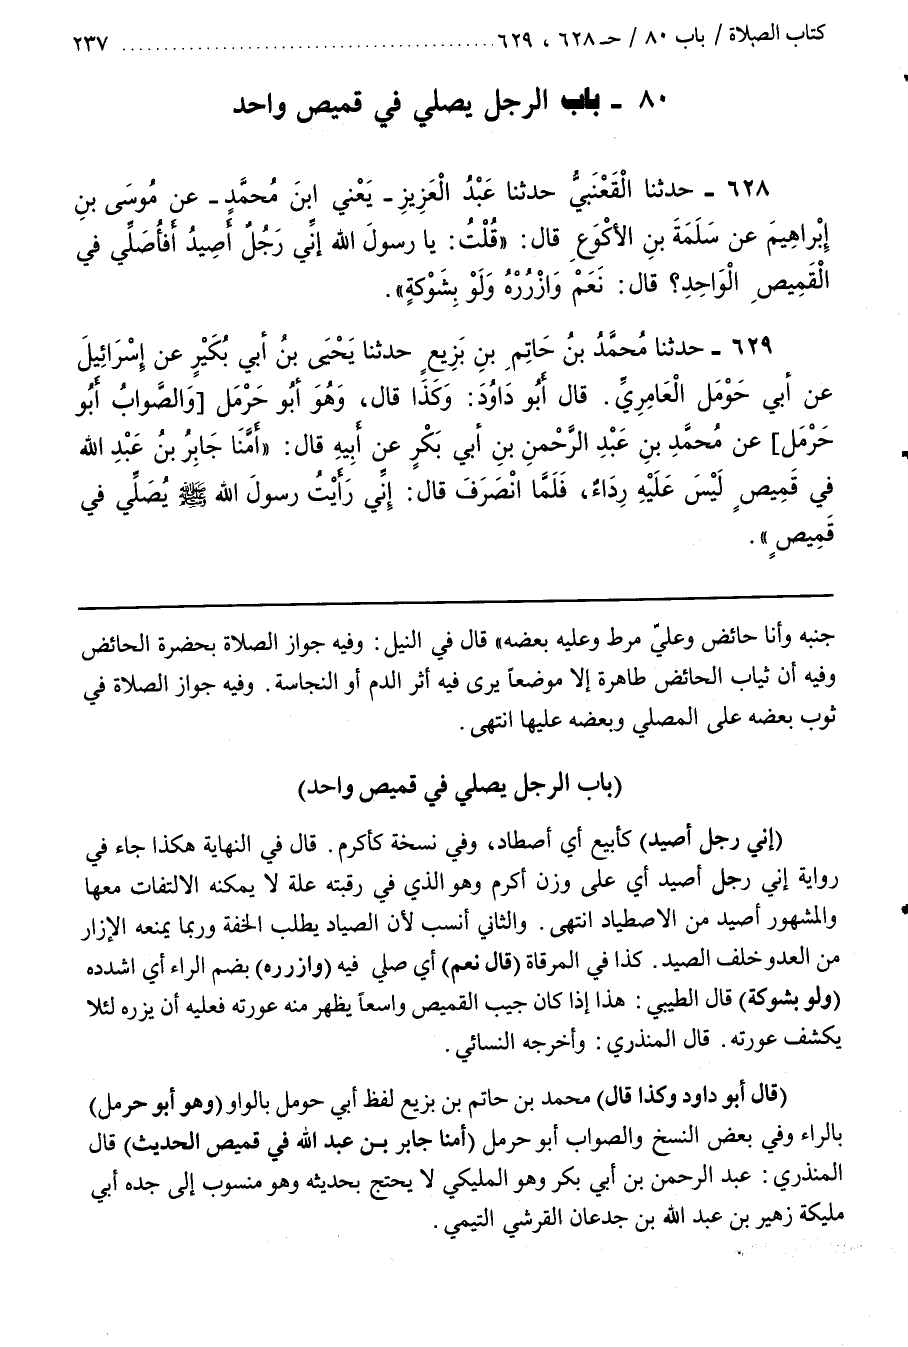 كتاب الصلاة / باب ٨٠ / حـ ٦٢٨ ، ٦٢٩ ........................................ ٢٣٧
٨٠ ـ باب الرجل يصلي في قميص واحد
٦٢٨ ـ حدثنا الْقَعْنَبيُّ حدثنا عَبْدُ الْعَزِيزِ ـ يَعْني ابنَ مُحمَّدٍ ـ عن مُوسَى بنِ
إبْراهِيمَ عن سَلَمَةَ بنِ الأكْوَعِ قال: «قُلْتُ: يا رسولَ الله إنِّي رَجُلٌ أَصِيدُ أَفأُصَلِّي في
الْقَمِيصِ الْوَاحِدِ؟ قال: نَعَمْ وَازْرُرْهُ وَلَوْ بِشَوْكَةٍ».
٦٢٩ ـ حدثنا مُحمَّدُ بنُ حَاتِمِ بنِ بَزِيعٍ حدثنا يَحْيَى بنُ أبي بُكَيْرٍ عن إسْرَائِيلَ
عن أبي حَوْمَلٍ الْعَامِرِيِّ. قال أَبُو دَاوُدَ: وَكَذَا قال، وَهُوَ أبُو حَرْمَلٍ [وَالصَّوابُ أَبُو
حَرْمَلٍ] عن مُحمَّدِ بنِ عَبْدِ الرَّحْمنِ بنِ أبي بَكْرٍ عن أَبِيهِ قال: «أَمَّنَا جَابِرُ بنُ عَبْدِ الله
في قَمِيصٍ لَيْسَ عَلَيْهِ رِدَاءٌ، فَلَمَّا انْصَرَفَ قال: إنِّي رَأَيْتُ رسولَ الله ﷺ يُصَلِّي في
قَمِيصٍ».
جنبه وأنا حائض وعليّ مرط وعليه بعضه» قال في النيل: وفيه جواز الصلاة بحضرة الحائض
وفيه أن ثياب الحائض طاهرة إلا موضعاً يرى فيه أثر الدم أو النجاسة. وفيه جواز الصلاة في
ثوب بعضه على المصلي وبعضه عليها انتهى.
(باب الرجل يصلي في قميص واحد)
(إني رجل أصيد) كأبيع أي أصطاد، وفي نسخة كأكرم. قال في النهاية هكذا جاء في
رواية إني رجل أصيد أي على وزن أكرم وهو الذي في رقبته علة لا يمكنه الالتفات معها
والمشهور أصيد من الاصطياد انتهى. والثاني أنسب لأن الصياد يطلب الخفة وربما يمنعه الإزار
من العدو خلف الصيد. كذا في المرقاة (قال نعم) أي صلي فيه (وازرره) بضم الراء أي اشدده
(ولو بشوكة) قال الطيبي: هذا إذا كان جيب القميص واسعاً يظهر منه عورته فعليه أن يزره لئلا
يكشف عورته. قال المنذري: وأخرجه النسائي.
(قال أبو داود وكذا قال) محمد بن حاتم بن بزيع لفظ أبي حومل بالواو (وهو أبو حرمل)
بالراء وفي بعض النسخ والصواب أبو حرمل (أمنا جابر بن عبد الله في قميص الحديث) قال
المنذري: عبد الرحمن بن أبي بكر وهو المليكي لا يحتج بحديثه وهو منسوب إلى جده أبي
مليكة زهير بن عبد الله بن جدعان القرشي التيمي.